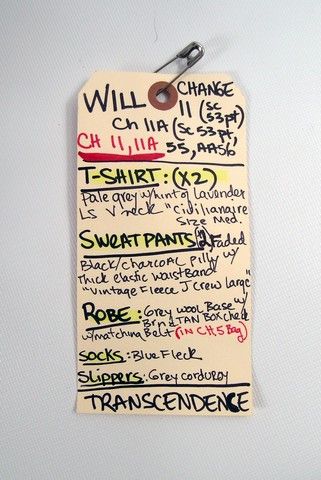 WILL CHANGE
11 (SC 53pt)
Ch 11A (SC 53pt,
CH 11, 11A 55, AA56
T-SHIRT: (X2)
Pale grey w/hint of lavender
LS V neck "Civilianaire
Size Med.
SWEATPANTS #2 Faded
Black/charcoal Pilly w/
Thick elastic waistBand
"Vintage Fleece J Crew large"
ROBE: Grey wool Base w/
Brn & TAN Box check
w/matching Belt (IN CH, 5 Bag)
SOCKS: Blue Fleck
Slippers: Grey corduroy
TRANSCENDENCE